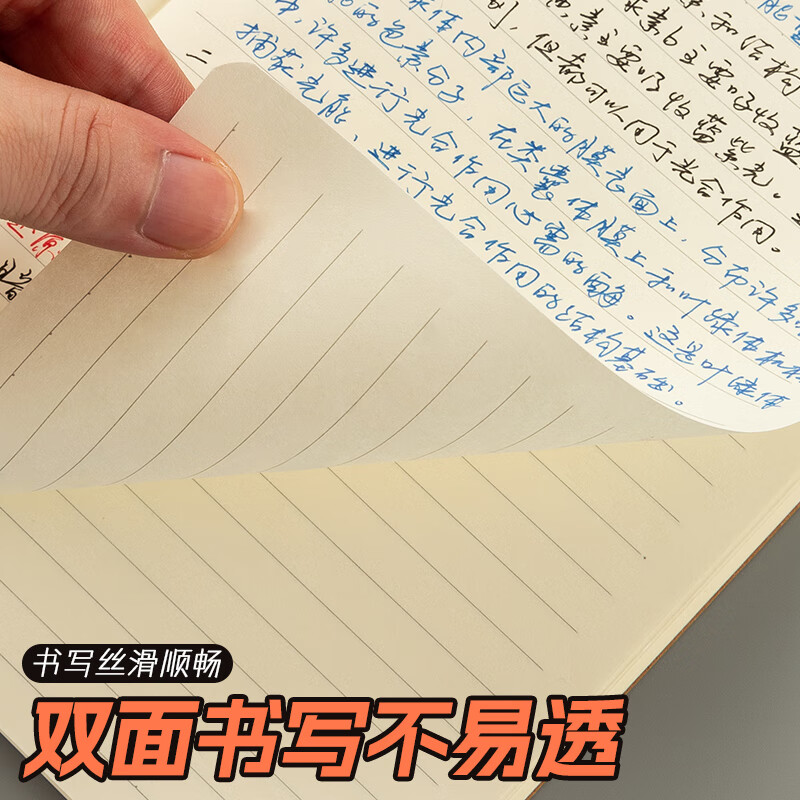 能量
和结构
素b主要吸收蓝
素主要吸收蓝紫光。
则,但都可以用于光合作用。
体内部巨大的膜表面上,分布许多
的色素分子,在类囊体膜上和叶绿体
中,许多进行光合作用必需的酶。这是叶绿体
捕获光能、进行光合作用的结构基础。
二
书写丝滑顺畅
双面书写不易透